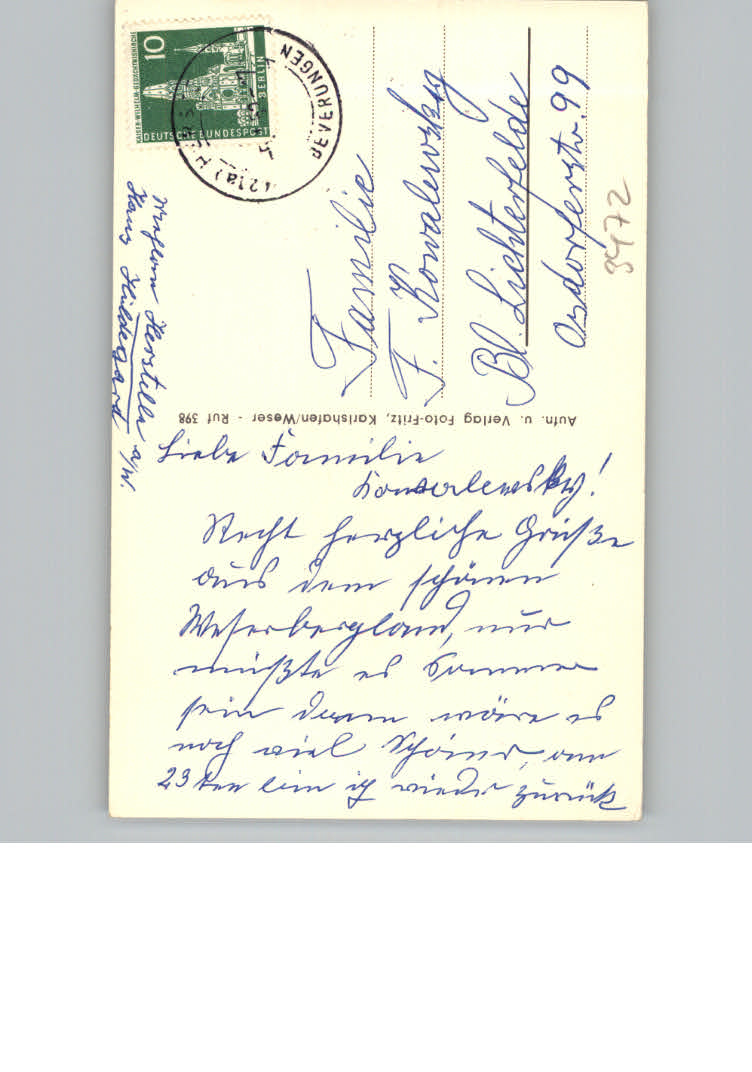 KAISER-WILHELM-GEDÄCHTNISKIRCHE
10
BERLIN
DEUTSCHE BUNDESPOST
BEVERUNGEN
(21a)
Familie
F. Kowalewsky
Bl. Lichterfelde
Osdorferstr. 99
3472
Herstelle a/W.
Haus Hildegard
Aufn. u. Verlag Foto-Fritz, Karlshafen/Weser - Ruf 398
Liebe Familie
Kowalewsky!
Recht herzliche Grüße
aus dem schönen
Weserbergland, nur
müßte es Sommer
sein dann wäre es
noch viel schöner, am
23ten bin ich wieder zurück